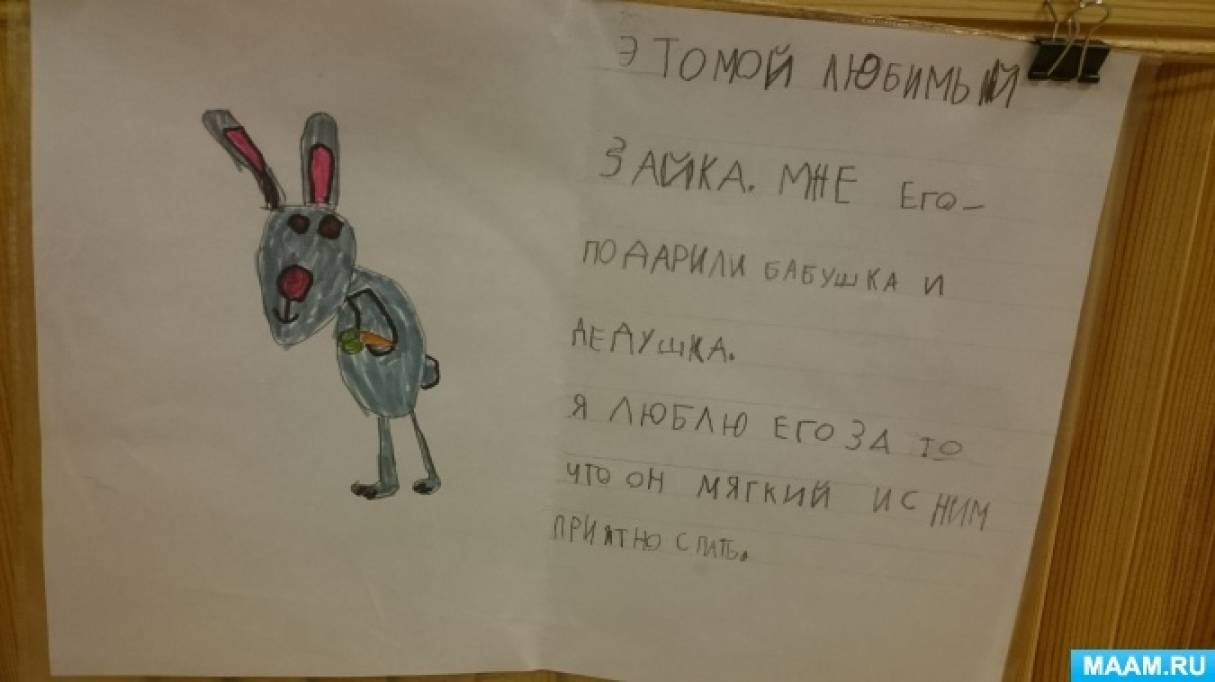 ЭТО МОЙ ЛЮБИМЫЙ
ЗАЙКА. МНЕ ЕГО-
ПОДАРИЛИ БАБУШКА И
ДЕДУШКА.
Я ЛЮБЛЮ ЕГО ЗА ТО
ЧТО ОН МЯГКИЙ И С НИМ
ПРИЯТНО СПАТЬ.
MAAM.RU